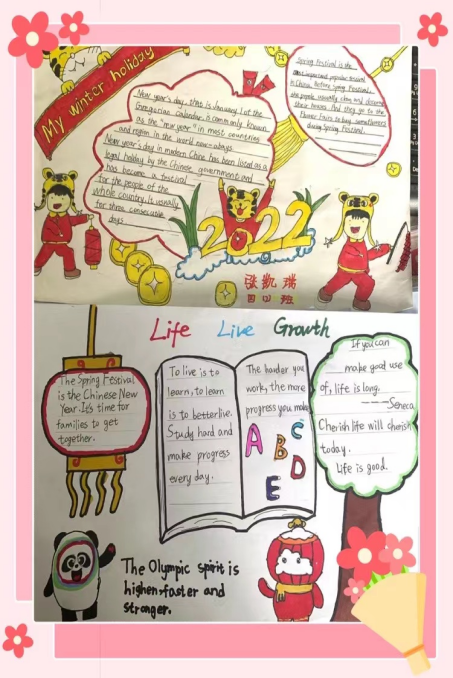 My winter holiday
New year's day, that is January 1 of the
Gregorian calendar is commonly known
as the "new year" in most countries
and region in the world now-adays.
New year's day in modern China has been listed as a
legal holiday by the Chinese government and
has become a festival
for the people of the
whole country. Is usually
for three consecutive
days
Spring Festival is the
most important popular festival
in China. Before Spring Festival
the people usually clean and decorate
their houses. And they go to the
Flower Fairs to buy
during Spring Festival.
2022
张凯瑞
四四班
Life Live Growth
The Spring Festival
is the Chinese New
Year. It's time for
families to get
together.
To live is to
learn, to learn
is to betterlive.
Study hard and
make progress
every day.
The harder you
work, the more
progress you make
A B C
D
E
If you can
make good use
of, life is long.
---Seneca
Cherish life will cherish
today.
Life is good.
The Olympic spirit is
higher, faster and
stronger.